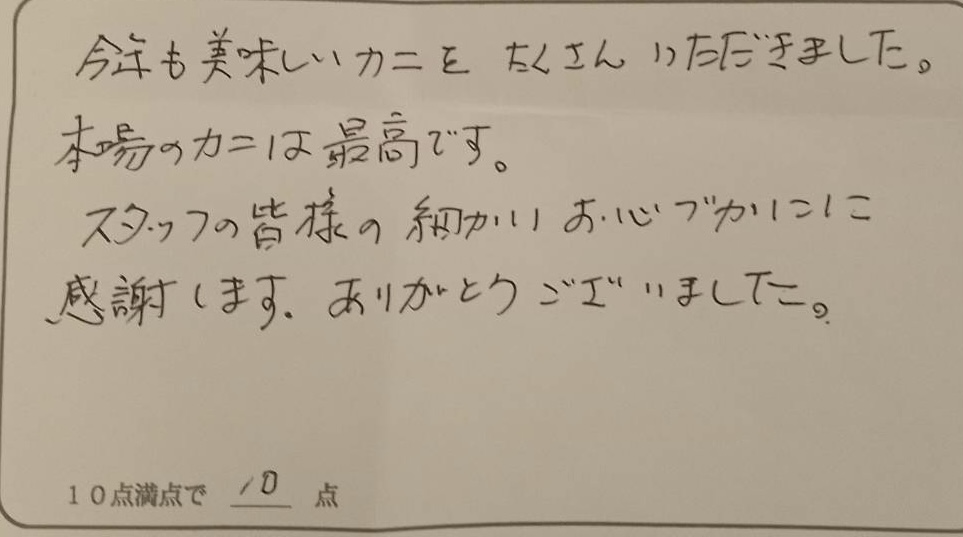 今年も美味しいカニを たくさん いただきました。
本場のカニは最高です。
スタッフの皆様の 細かい お心づかいに
感謝します。ありがとうございました。
10点満点で 10 点